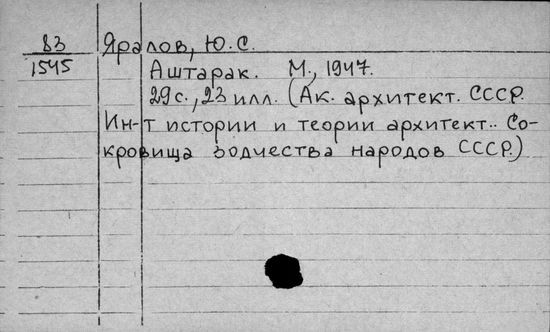 83 Яралов, Ю.С.
1545 Аштарак. М., 1947.
29 с., 23 илл. (Ак. архитект. СССР.
Ин-т истории и теории архитект.. Со-
кровища зодчества народов СССР.)